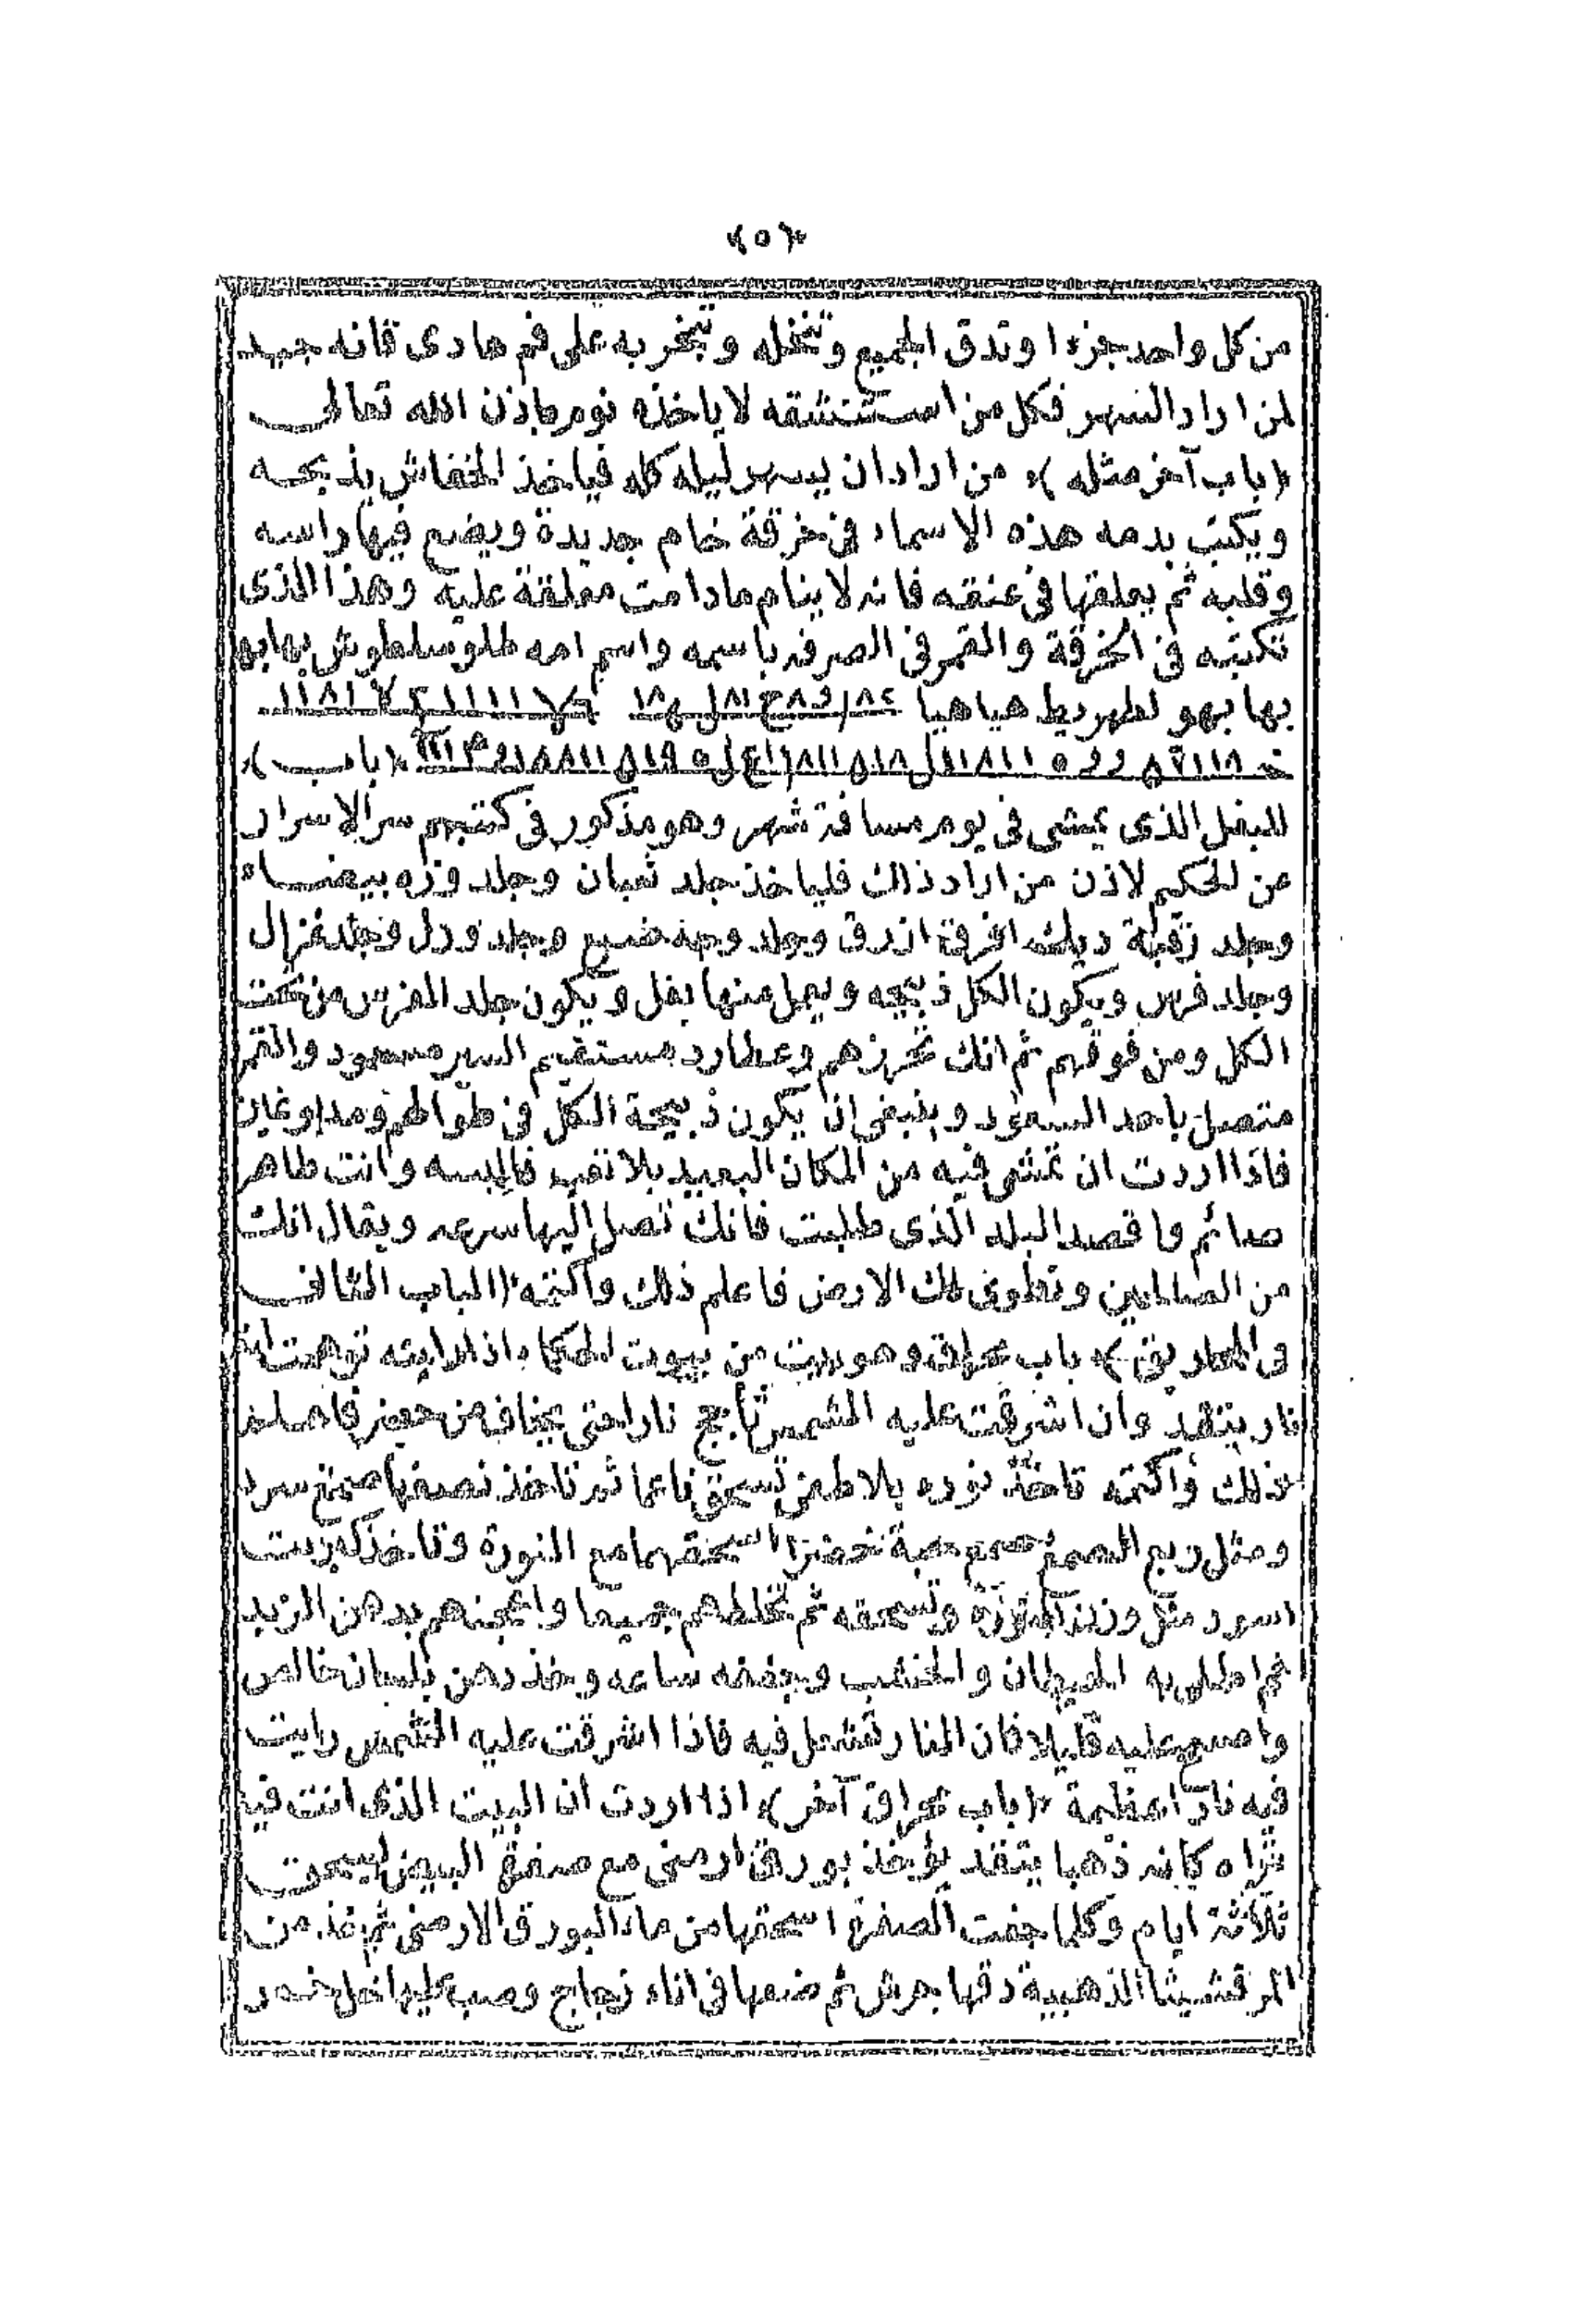 ﴿٥﴾
من كل واحد جزء ا وتدق الجميع وتنخله وتبخر به على فم هادى فانه جيد
لمن اراد السهر فكل من استنشقه لا ياخذه نوم باذن الله تعالى
﴿باب آخر مثله﴾ من اراد ان يسهر ليله كله فياخذ الخفاش يذبحه
ويكتب بدمه هذه الاسماء فى خرقة خام جديدة ويضع فيها راسه
وقلبه ثم يعلقها فى عنقه فانه لا ينام مادامت معلقة عليه وهذا الذى
تكتبه فى الخرقة والقمر فى الصرفه باسمه واسم امه طلوسلطوش بها بها
بها بهو لطهر يط هيا هيا
﴿باب﴾
للبغل الذى يمشى فى يوم مسافة شهر وهو مذكور فى كتبهم سر الاسرار
عن الحكيم لاذن من اراد ذالك فلياخذ جلد ثعبان وجلد وزه بيضاء
وجلد رقبة ديك افرق ازرق وجلد وجه ضبع وجلد ورل وجلد غزال
وجلد فرس ويكون الكل ذبيحه ويعمل منها بغل ويكون جلد الفرس من تحت
الكل ومن فوقهم ثم انك تخرزهم وعطارد مستقيم السير مسعود والقمر
متصل باحد السعود وينبغى ان يكون ذبيحة الكل فى
فاذا اردت ان تمشى فيه من المكان البعيد بلا تعب فالبسه وانت طاهر
صائم واقصد البلد الذى طلبت فانك تصل اليها سرعه ويقال انك
من الصالحين وتطوى لك الارض فاعلم ذلك واكتمه ﴿الباب الثالث
فى المحاريق﴾ باب محراق وهو بيت من بيوت الحكماء اذا رايته توهمت انه
نار يتقد وان اشرقت عليه الشمس تأجج نارا حتى يخاف من حضر فاصلح
ذلك واكتمه تاخذ نوره بلا طفى تسحق ناعما ثم تاخذ نصفها
ومثل ربع الصمغ صمغ حبة خضرا اسحقهما مع النورة وتاخذ كبريت
اسود مثل وزن النورة وتسحقه ثم تخلطهم جميعا واعجنهم بدهن الزبد
ثم اطلى به الحيطان والخشب وجففه ساعه وخذ دهن بلسان خالص
وامسح عليه قليلا فان النار تشعل فيه فاذا اشرقت عليه الشمس رايت
فيه نارا عظيمة ﴿باب محراق آخر﴾ اذا اردت ان البيت الذى انت فيه
تراه كانه ذهبا يتقد يؤخذ بورق ارمنى مع صفرة البيض اسحق
ثلاثة ايام وكلما جفت الصفرة اسحقها من ماء البورق الارمنى ثم خذ من
المرقشيثا الذهبية دقها جرش ثم ضعها فى اناء زجاج وصب عليها خل خمر